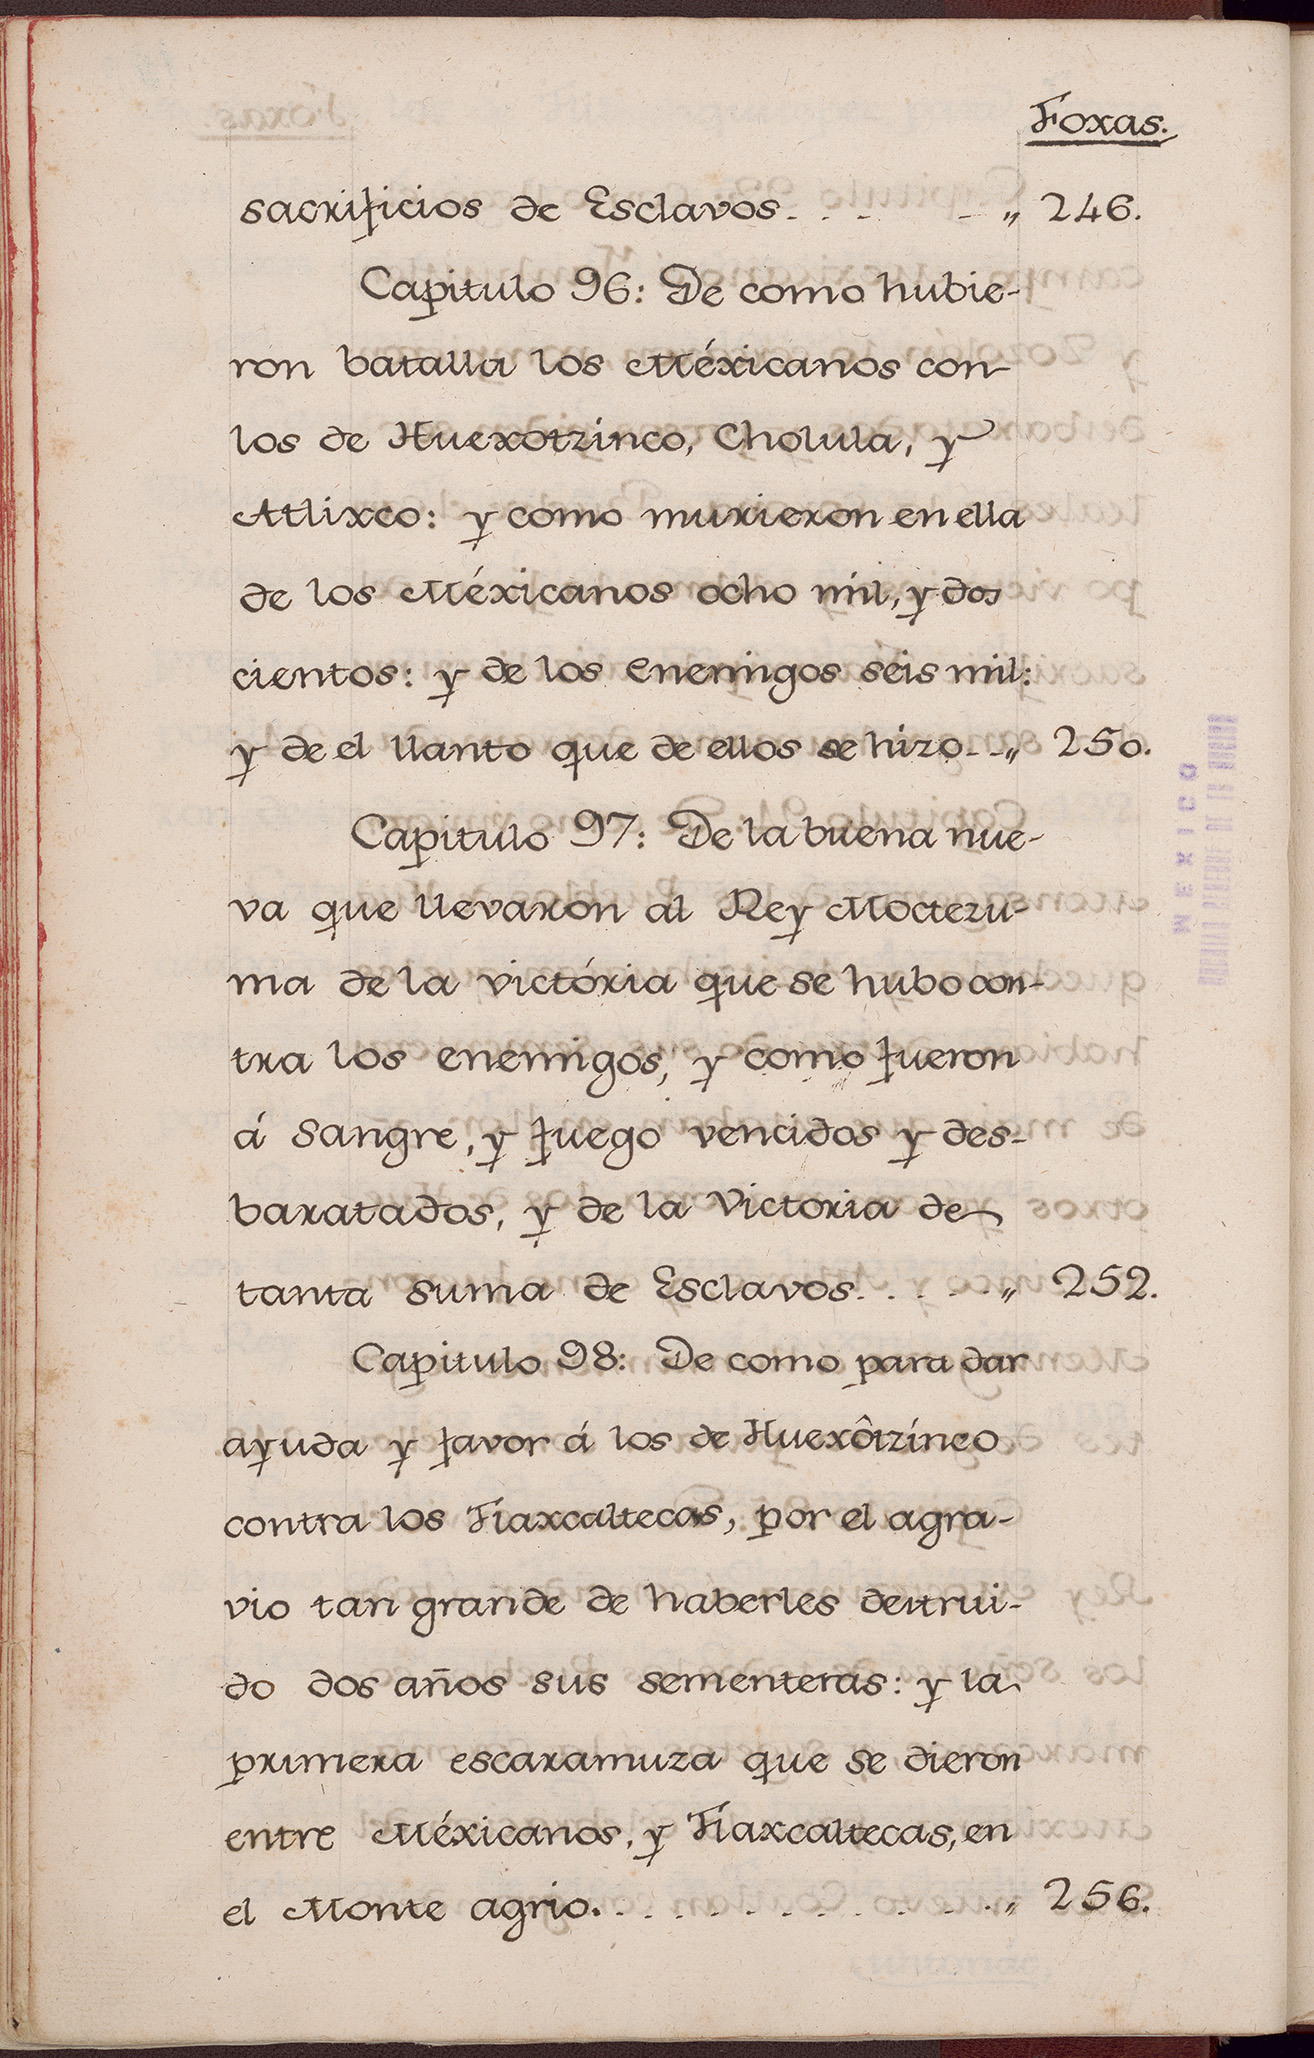 Foxas.
sacrificios de Esclavos. . . . . „ 246.
Capitulo 96: De como hubie-
ron batalla los Méxicanos con
los de Huexotzinco, Cholula, y
Atlixco: y como murieron en ella
de los Méxicanos ocho mil, y dos
cientos: y de los enemigos séis mil:
y de el llanto que de ellos se hizo . . „ 250.
Capitulo 97: De la buena nue-
va que llevaron al Rey Moctezu-
ma de la victória que se hubo con-
tra los enemigos, y como fueron
á sangre, y fuego vencidos y des-
baratados, y de la Victoria de
tanta suma de Esclavos. . . . . „ 252.
Capitulo 98: De como para dar
ayuda y favor á los de Huexôtzinco
contra los Tlaxcaltecas, por el agra-
vio tan grande de haberles destrui-
do dos años sus sementeras: y la
primera escaramuza que se dieron
entre Méxicanos, y Tlaxcaltecas, en
el Monte agrio. . . . . . . . . . „ 256.
MEXICO